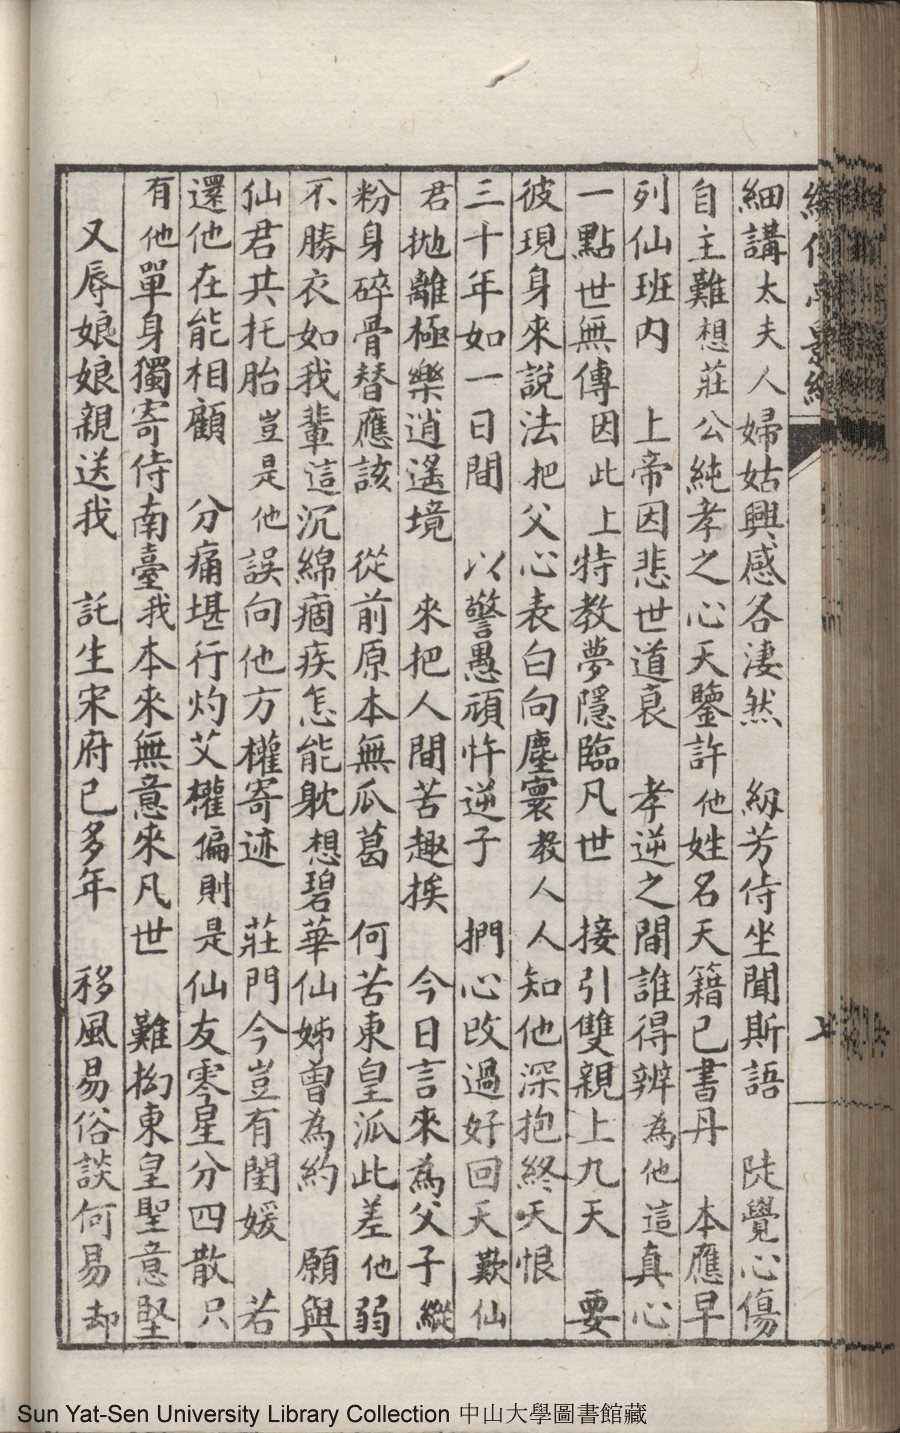 細講太夫人婦姑興感各淒然　紉芳侍坐聞斯語　陡覺心傷
自主難想莊公純孝之心天鑒許他姓名天籍已書丹　本應早
列仙班內　上帝因悲世道衰　孝逆之間誰得辨為他這真心
一點世無傳因此上特教夢隱臨凡世　接引雙親上九天　要
彼現身來說法把父心表白向塵寰教人人知他深抱終天恨
三十年如一日間　以警愚頑忤逆子　捫心改過好回天歎仙
君拋離極樂逍遙境　來把人間苦趣挨　今日言來為父子縱
粉身碎骨替應該　從前原本無瓜葛　何苦東皇派此差他弱
不勝衣如我輩這沉綿痼疾怎能躭想碧華仙姊曾為約　願與
仙君共托胎豈是他誤向他方權寄迹　莊門今豈有閨媛　若
還他在能相顧　分痛堪行灼艾權偏則是仙友零星分四散只
有他單身獨寄侍南臺我本來無意來凡世　難拗東皇聖意堅
又辱娘娘親送我　託生宋府已多年　移風易俗談何易却
Sun Yat-Sen University Library Collection 中山大學圖書館藏